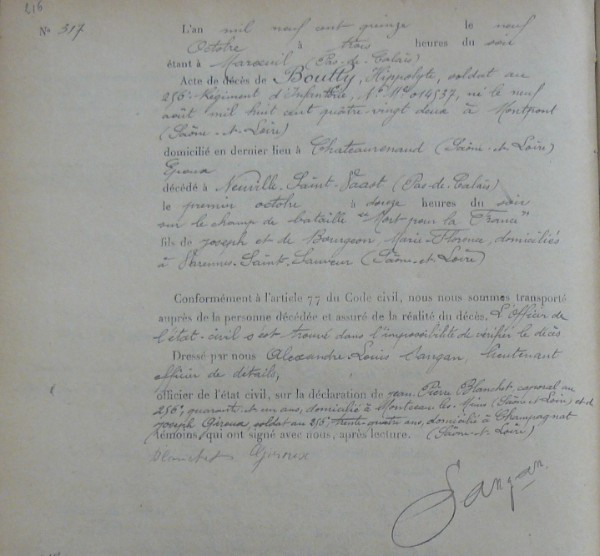 216
N° 317
L'an mil neuf cent quinze le neuf
Octobre à trois heures du soir
étant à Maroeuil (Pas-de-Calais)
Acte de décès de Boutty, Hippolyte, soldat au
256e Régiment d'Infanterie, N° Mle 014537, né le neuf
août mil huit cent quatre-vingt deux à Montpont
(Saône-et-Loire)
domicilié en dernier lieu à Chateaurenaud (Saône-et-Loire)
décédé à Neuville-Saint-Vaast (Pas-de-Calais)
le premier octobre à douze heures du soir
sur le champ de bataille "Mort pour la France"
fils de Joseph et de Bourgeon, Marie-Florence, domiciliés
à Varennes-Saint-Sauveur (Saône-et-Loire)
Conformément à l'article 77 du Code civil, nous nous sommes transporté
auprès de la personne décédée et assuré de la réalité du décès. L'officier de
l'état-civil s'est trouvé dans l'impossibilité de vérifier le décès
Dressé par nous Alexandre-Louis Sangan, lieutenant
officier de détails,
officier de l'état civil, sur la déclaration de Jean Pierre Blanchet, caporal au
256e, quarante et un ans, domicilié à Montceau-les-Mines (Saône-et-Loire) et de
Joseph Giroux, soldat au 256e trente-quatre ans, domicilié à Champagnat
témoins, qui ont signé avec nous, après lecture. (Saône-et-Loire)
Blanchet Giroux
Sangan